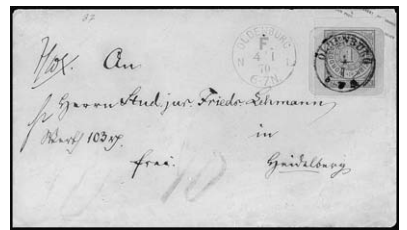 OLDENBURG
F.
4 I
70
N I
6-7N.
OLDENBURG
An
Herrn Stud. jur. Friedr. Lehmann
in
Werth 103 rp.
frei.
Heidelberg